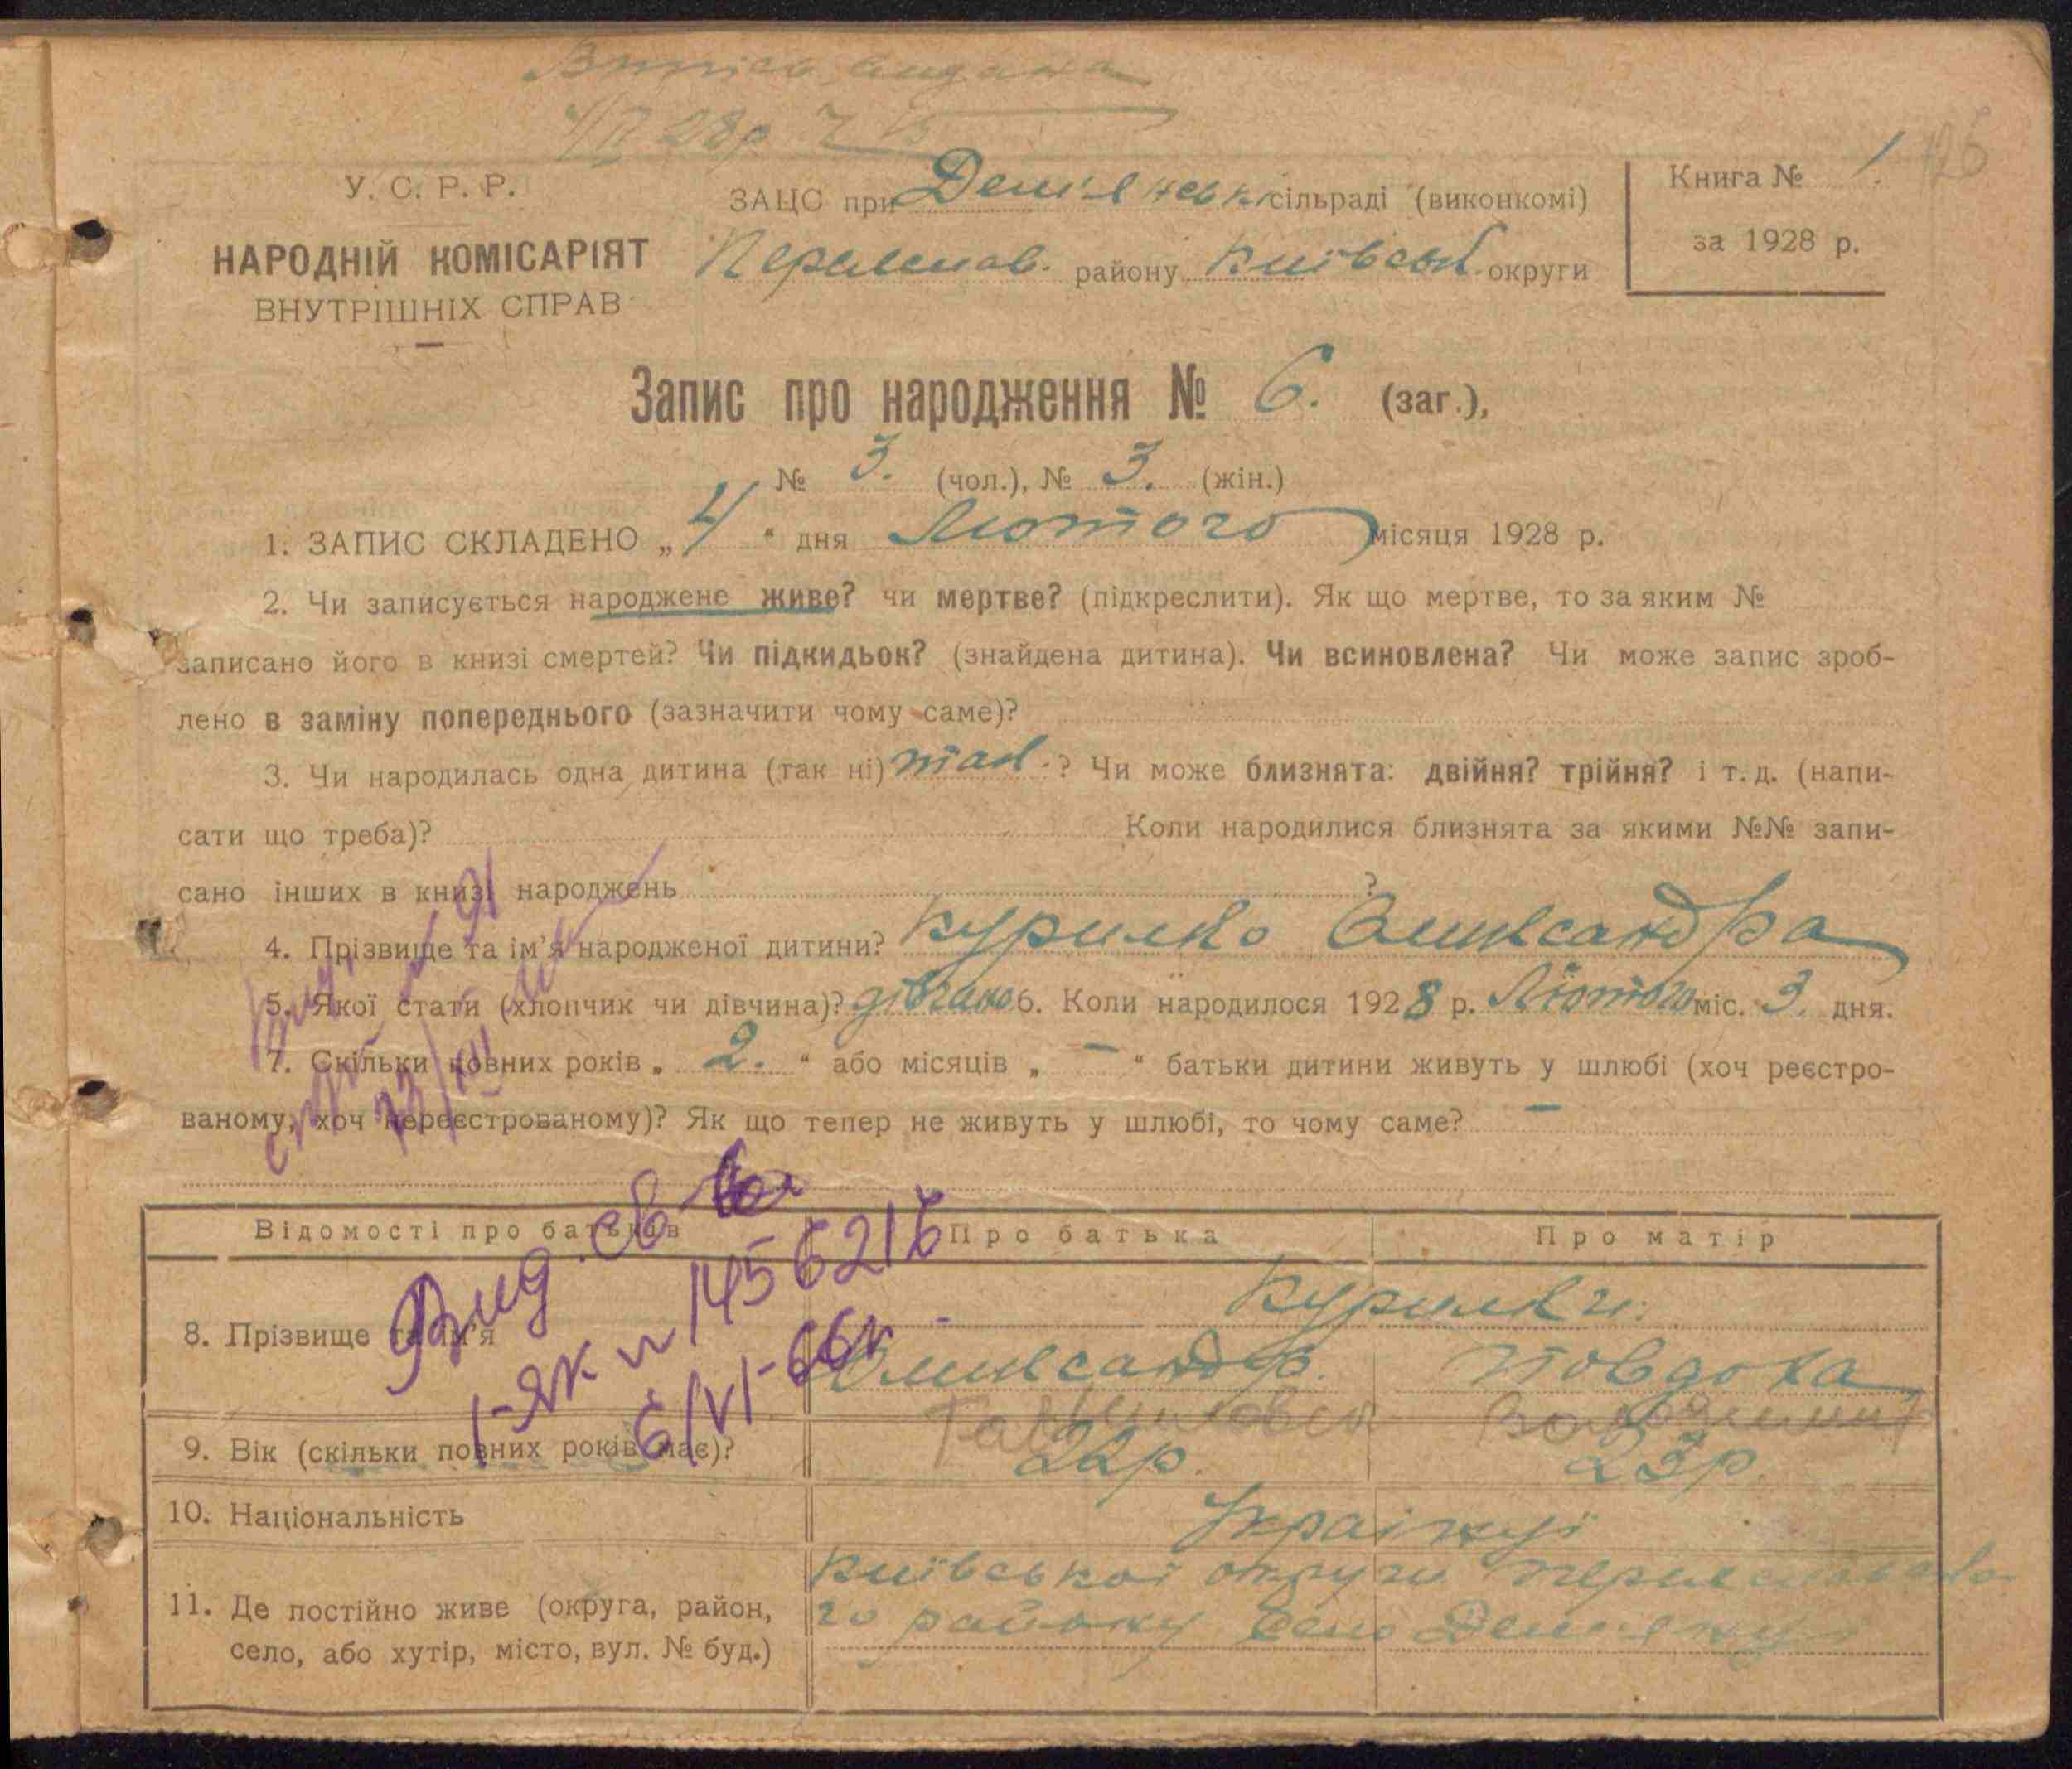 Випись видана
У. С. Р. Р.
НАРОДНІЙ КОМІСАРІЯТ
ВНУТРІШНІХ СПРАВ
ЗАЦС при Дем'янськ. сільраді (виконкомі)
Переяслав. району Київськ. округи
Книга № 1.
за 1928 р.
126
Запис про народження № 6. (заг.),
№ 3. (чол.), № 3. (жін.)
1. ЗАПИС СКЛАДЕНО „4“ дня Лютого місяця 1928 р.
2. Чи записується народжене живе? чи мертве? (підкреслити). Як що мертве, то за яким №
записано його в книзі смертей? Чи підкидьок? (знайдена дитина). Чи всиновлена? Чи може запис зроб-
лено в заміну попереднього (зазначити чому саме)?
3. Чи народилась одна дитина (так ні) так.? Чи може близнята: двійня? трійня? і т. д. (напи-
сати що треба)? Коли народилися близнята за якими №№ запи-
сано інших в книзі народжень ?
4. Прізвище та ім'я народженої дитини? Курилко Олександра
5. Якої стати (хлопчик чи дівчина)? дівчана 6. Коли народилося 1928 р. Лютого міс. 3. дня.
7. Скільки повних років „2.“ або місяців „—“ батьки дитини живуть у шлюбі (хоч реєстро-
ваному, хоч нереєстрованому)? Як що тепер не живуть у шлюбі, то чому саме? —
Вид. св-во
I-ЯК № 1456216
6/VI-66
Відомості про батьків Про батька Про матір
8. Прізвище та ім'я Курилки.
Олександр. Товдоха
9. Вік (скільки повних років має)? 22р. 23р.
10. Національність Українці
11. Де постійно живе (округа, район, Київської округи Переяславсько-
село, або хутір, місто, вул. № буд.) го району село Дем'янці